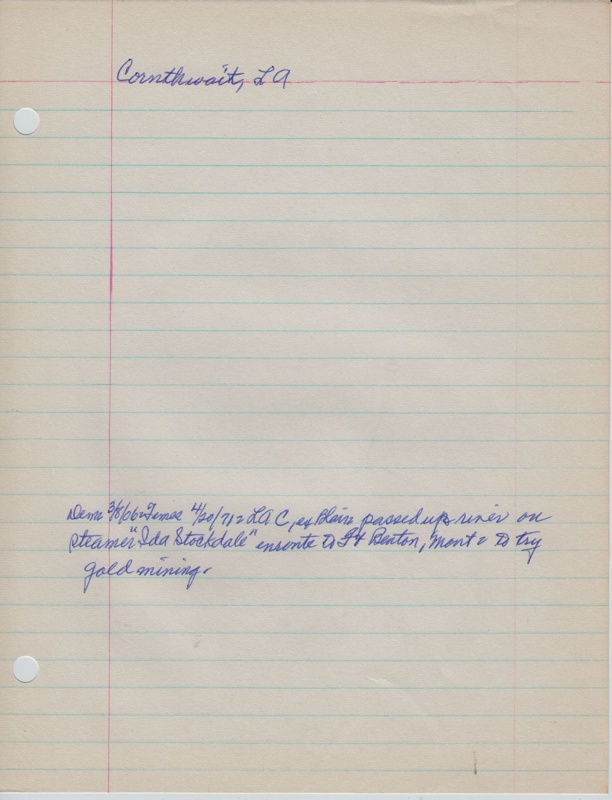 Cornthwait, L A
Dem= 3/8/06=Times 4/20/71= L A C, ex Blair passed up river on
steamer "Ida Stockdale" enroute to Ft Benton, Mont = to try
gold mining.